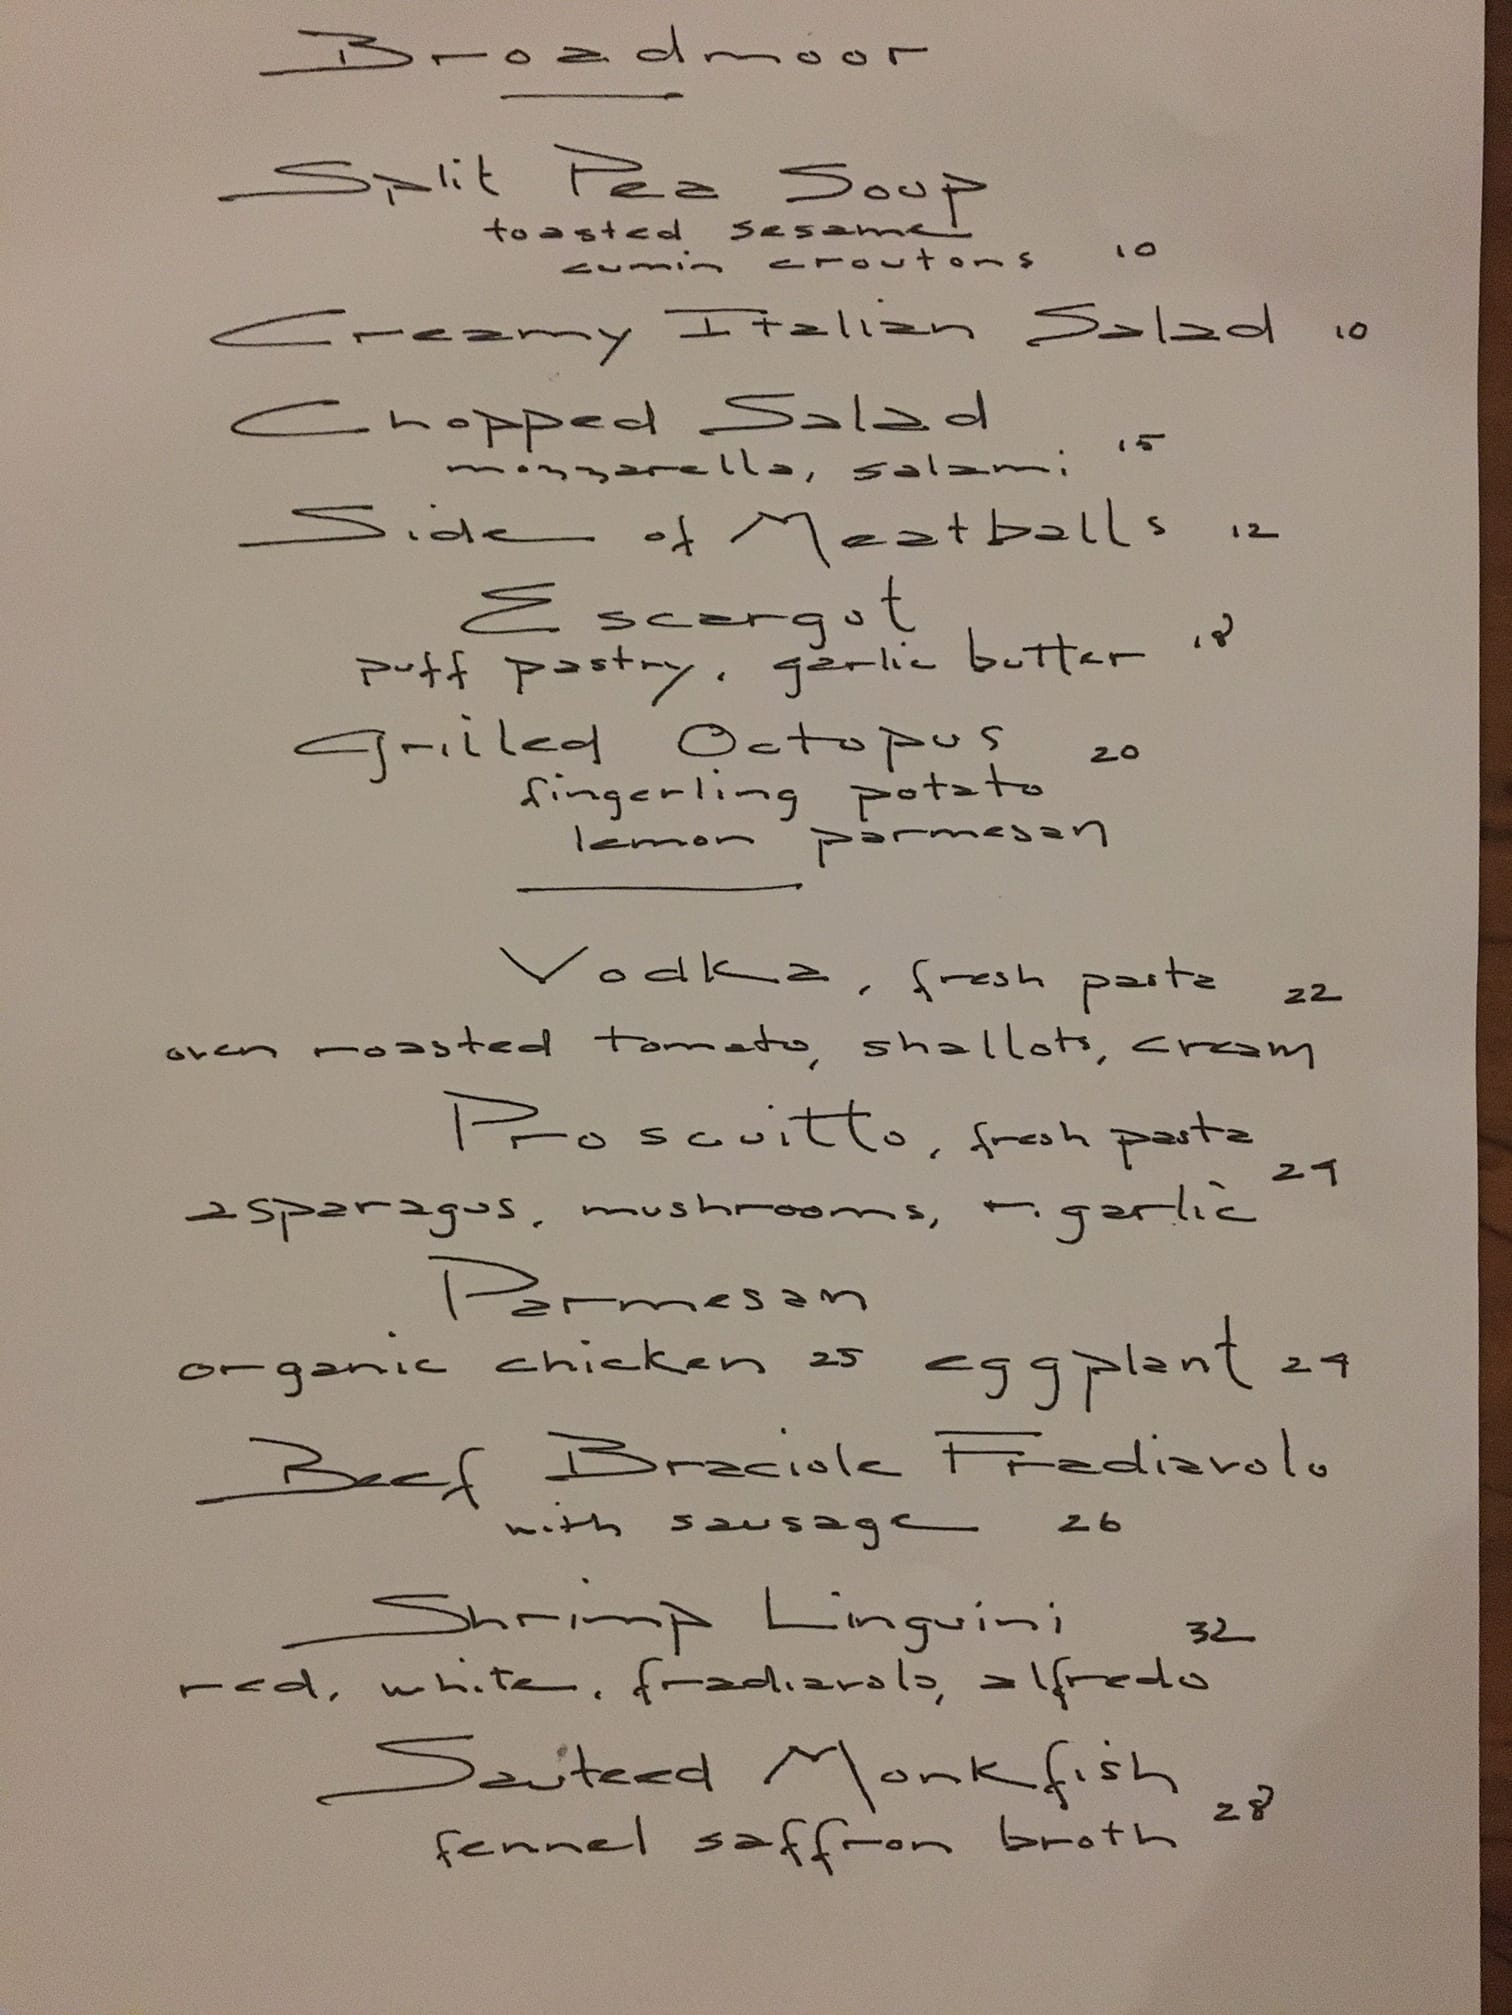 Broadmoor
Split Pea Soup
toasted sesame
cumin croutons 10
Creamy Italian Salad 10
Chopped Salad
mozzarella, salami 15
Side of Meatballs 12
Escargot
puff pastry, garlic butter 18
Grilled Octopus 20
fingerling potato
lemon parmesan
Vodka, fresh pasta 22
oven roasted tomato, shallots, cream
Proscuitto, fresh pasta
asparagus, mushrooms, r. garlic 24
Parmesan
organic chicken 25 eggplant 24
Beef Braciole Fradiavolo
with sausage 26
Shrimp Linguini 32
red, white, fradiavolo, alfredo
Sauteed Monkfish
fennel saffron broth 28